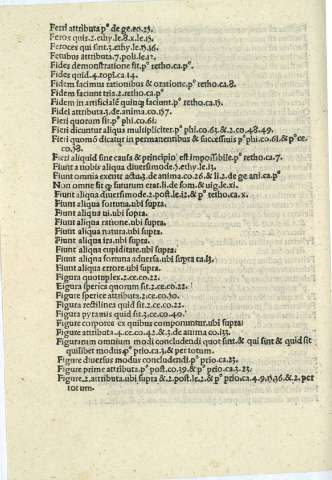 Ferri attributa pº de ge.co.25.
Ferox quis.2.ethy.le.8.⁊ le.13.
Feroces qui sint.3.ethy.le.17.⁊ 16.
Fetubus attributa.7.poli.le.12.
Fides demonstratione sit.pº retho.ca.pº
Fides quid.4.topi.ca.14.
Fidem facimus rationibus & oratione.pº retho.ca.8.
Fidem faciunt tria.2.retho.ca.pº
Fidem in artificialē quinq; faciunt.pº retho.ca.13.
Fidei attributa.3.de anima.co.157.
Fieri quorum sit.pº phi.co.61.
Fieri dicuntur aliqua multipliciter.pº phi.co.63.&.2.co.48.49.
Fieri quomō dicatur in permanentibus & successiuis pº phi.co.61.& pº ce.
co.38.
Fieri aliquid sine causa & principio est impossibile.pº retho.ca.7.
Fiunt a nobis aliqua diuersimode.3.ethy.le.13.
Fiunt omnia exente actu.3.de anima.co.26.& li.2.de ge ani.ca.pº
Non omne fit qƺ futurum erat.li.de som.& uig.le.xi.
Fiunt aliqua diuersimode.2.post.le.12.& pº retho.ca.x.
Fiunt aliqua fortuna.ubi supra.
Fiunt aliqua ui.ubi supra.
Fiunt aliqua ratione.ubi supra.
Fiunt aliqua natura.ubi supra.
Fiunt aliqua ira.ubi supra.
Fiunt aliqua cupiditate.ubi supra.
Fiunt aliqua fortuna aduersa.ubi supra ca.13.
Fiunt aliqua errore.ubi supra.
Figura quotuplex.2.ce.co.22.
Figura sperica quorum sit.2.ce.co.22.
Figure sperice attributa.2.ce.co.30.
Figura rectilinea quid sit.2.ce.co.22.
Figura pyramis quid sit.3.ce.co.40.
Figure corporee ex quibus componuntur.ubi supra.
Figure attributa.4.ce.co.42.&.3.de anima.co.133.
Figurarum omnium modi concludendi quot sint.& qui sint & quid sit
quilibet modus pº prio.ca.3.& per totum.
Figure diuersus modus concludendi.pº prio.ca.23.
Figure prime attributa.pº post.co.39.& pº prio.ca.3.23.
Figure.2.attributa.ubi supra &.2.post.le.2.& pº prio.ca.4.9.17.16.&.2.per
totum.